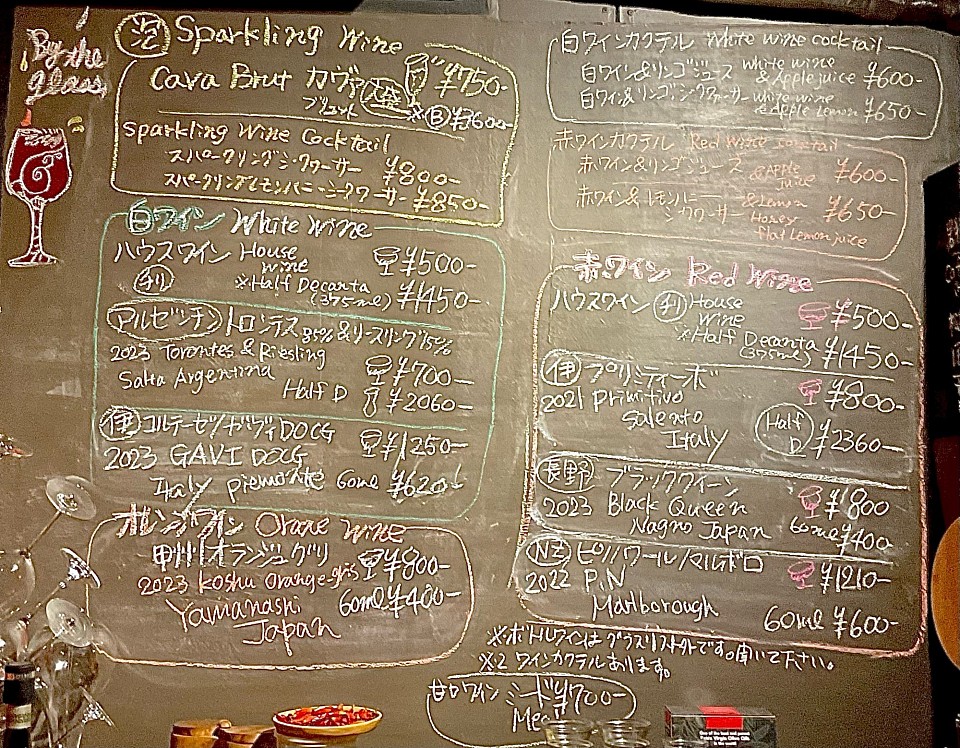 By the
glass
泡 Sparkling Wine
Cava Brut カヴァ ¥750-
ブリュット ※Ⓑ¥3600-
Sparkling Wine Cocktail
スパークリングシークヮーサー ¥800-
スパークリングレモンハニーシークヮーサー ¥850-
白ワイン White Wine
ハウスワイン House wine ¥500-
チリ ※Half Decanta (375ml) ¥1450-
アルゼンチン トロンテス85%&リースリング15%
2023 Torontes & Riesling
Salta Argentina ¥700-
Half D ¥2060-
伊 コルテーゼ/ガヴィDOCG
2023 GAVI DOCG ¥1250-
Italy piemonte 60ml ¥620-
オレンジワイン Orane Wine
甲州オランジュグリ ¥800-
2023 Koshu Orange-gris
Yamanashi 60ml ¥400-
Japan
白ワインカクテル White wine cocktail
白ワイン&リンゴジュース white wine & Apple juice ¥600-
白ワイン&リンゴシークヮーサー white wine & Apple Lemon ¥650-
赤ワインカクテル Red wine cocktail
赤ワイン&リンゴジュース & Apple juice ¥600-
赤ワイン&レモンハニーシークヮーサー & Lemon Honey flat Lemon juice ¥650-
赤ワイン Red Wine
ハウスワイン チリ House Wine ¥500-
※Half Decanta (375ml) ¥1450-
伊 プリミティーボ
2021 Primitivo ¥800-
Salento
Italy Half D ¥2360-
長野 ブラッククイーン
2023 Black Queen ¥800
Nagno Japan 60ml ¥400-
NZ ピノノワール/マルボロ
2022 P.N ¥1210-
Marlborough 60ml ¥600-
※ボトルワインはグラスリスト外です。聞いて下さい。
※2 ワインカクテルあります。
甘口ワイン ミード ¥700-
Mead